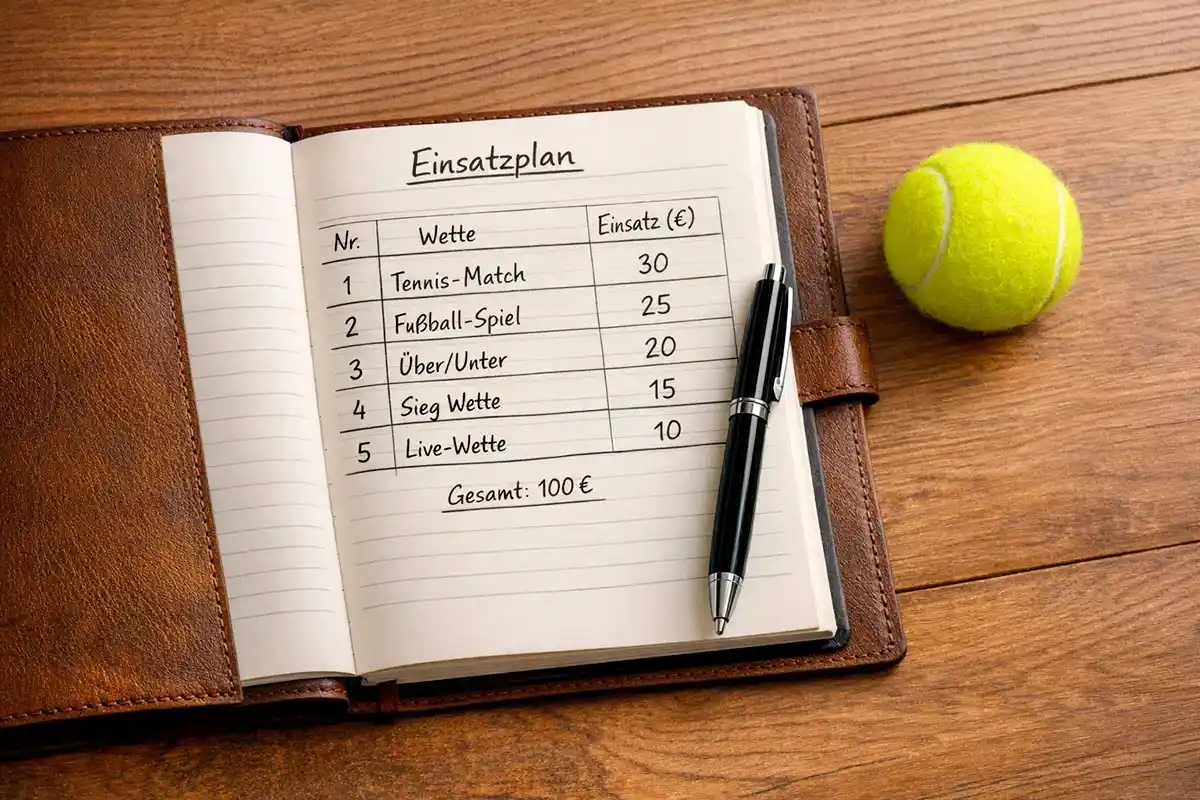 Einsatzplan
Nr. Wette Einsatz (€)
1 Tennis-Match 30
2 Fußball-Spiel 25
3 Über/Unter 20
4 Sieg Wette 15
5 Live-Wette 10
Gesamt: 100 €